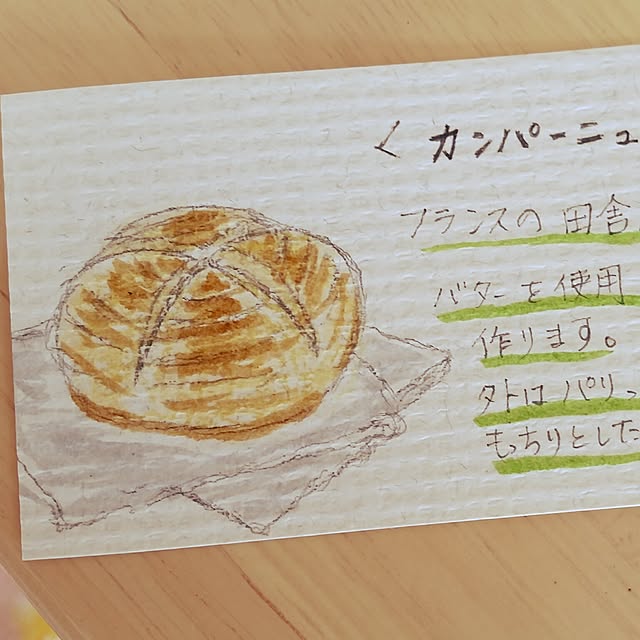 < カンパーニュ
フランスの 田舎
バターを使用
作ります。
外はパリっ
もっちりとした